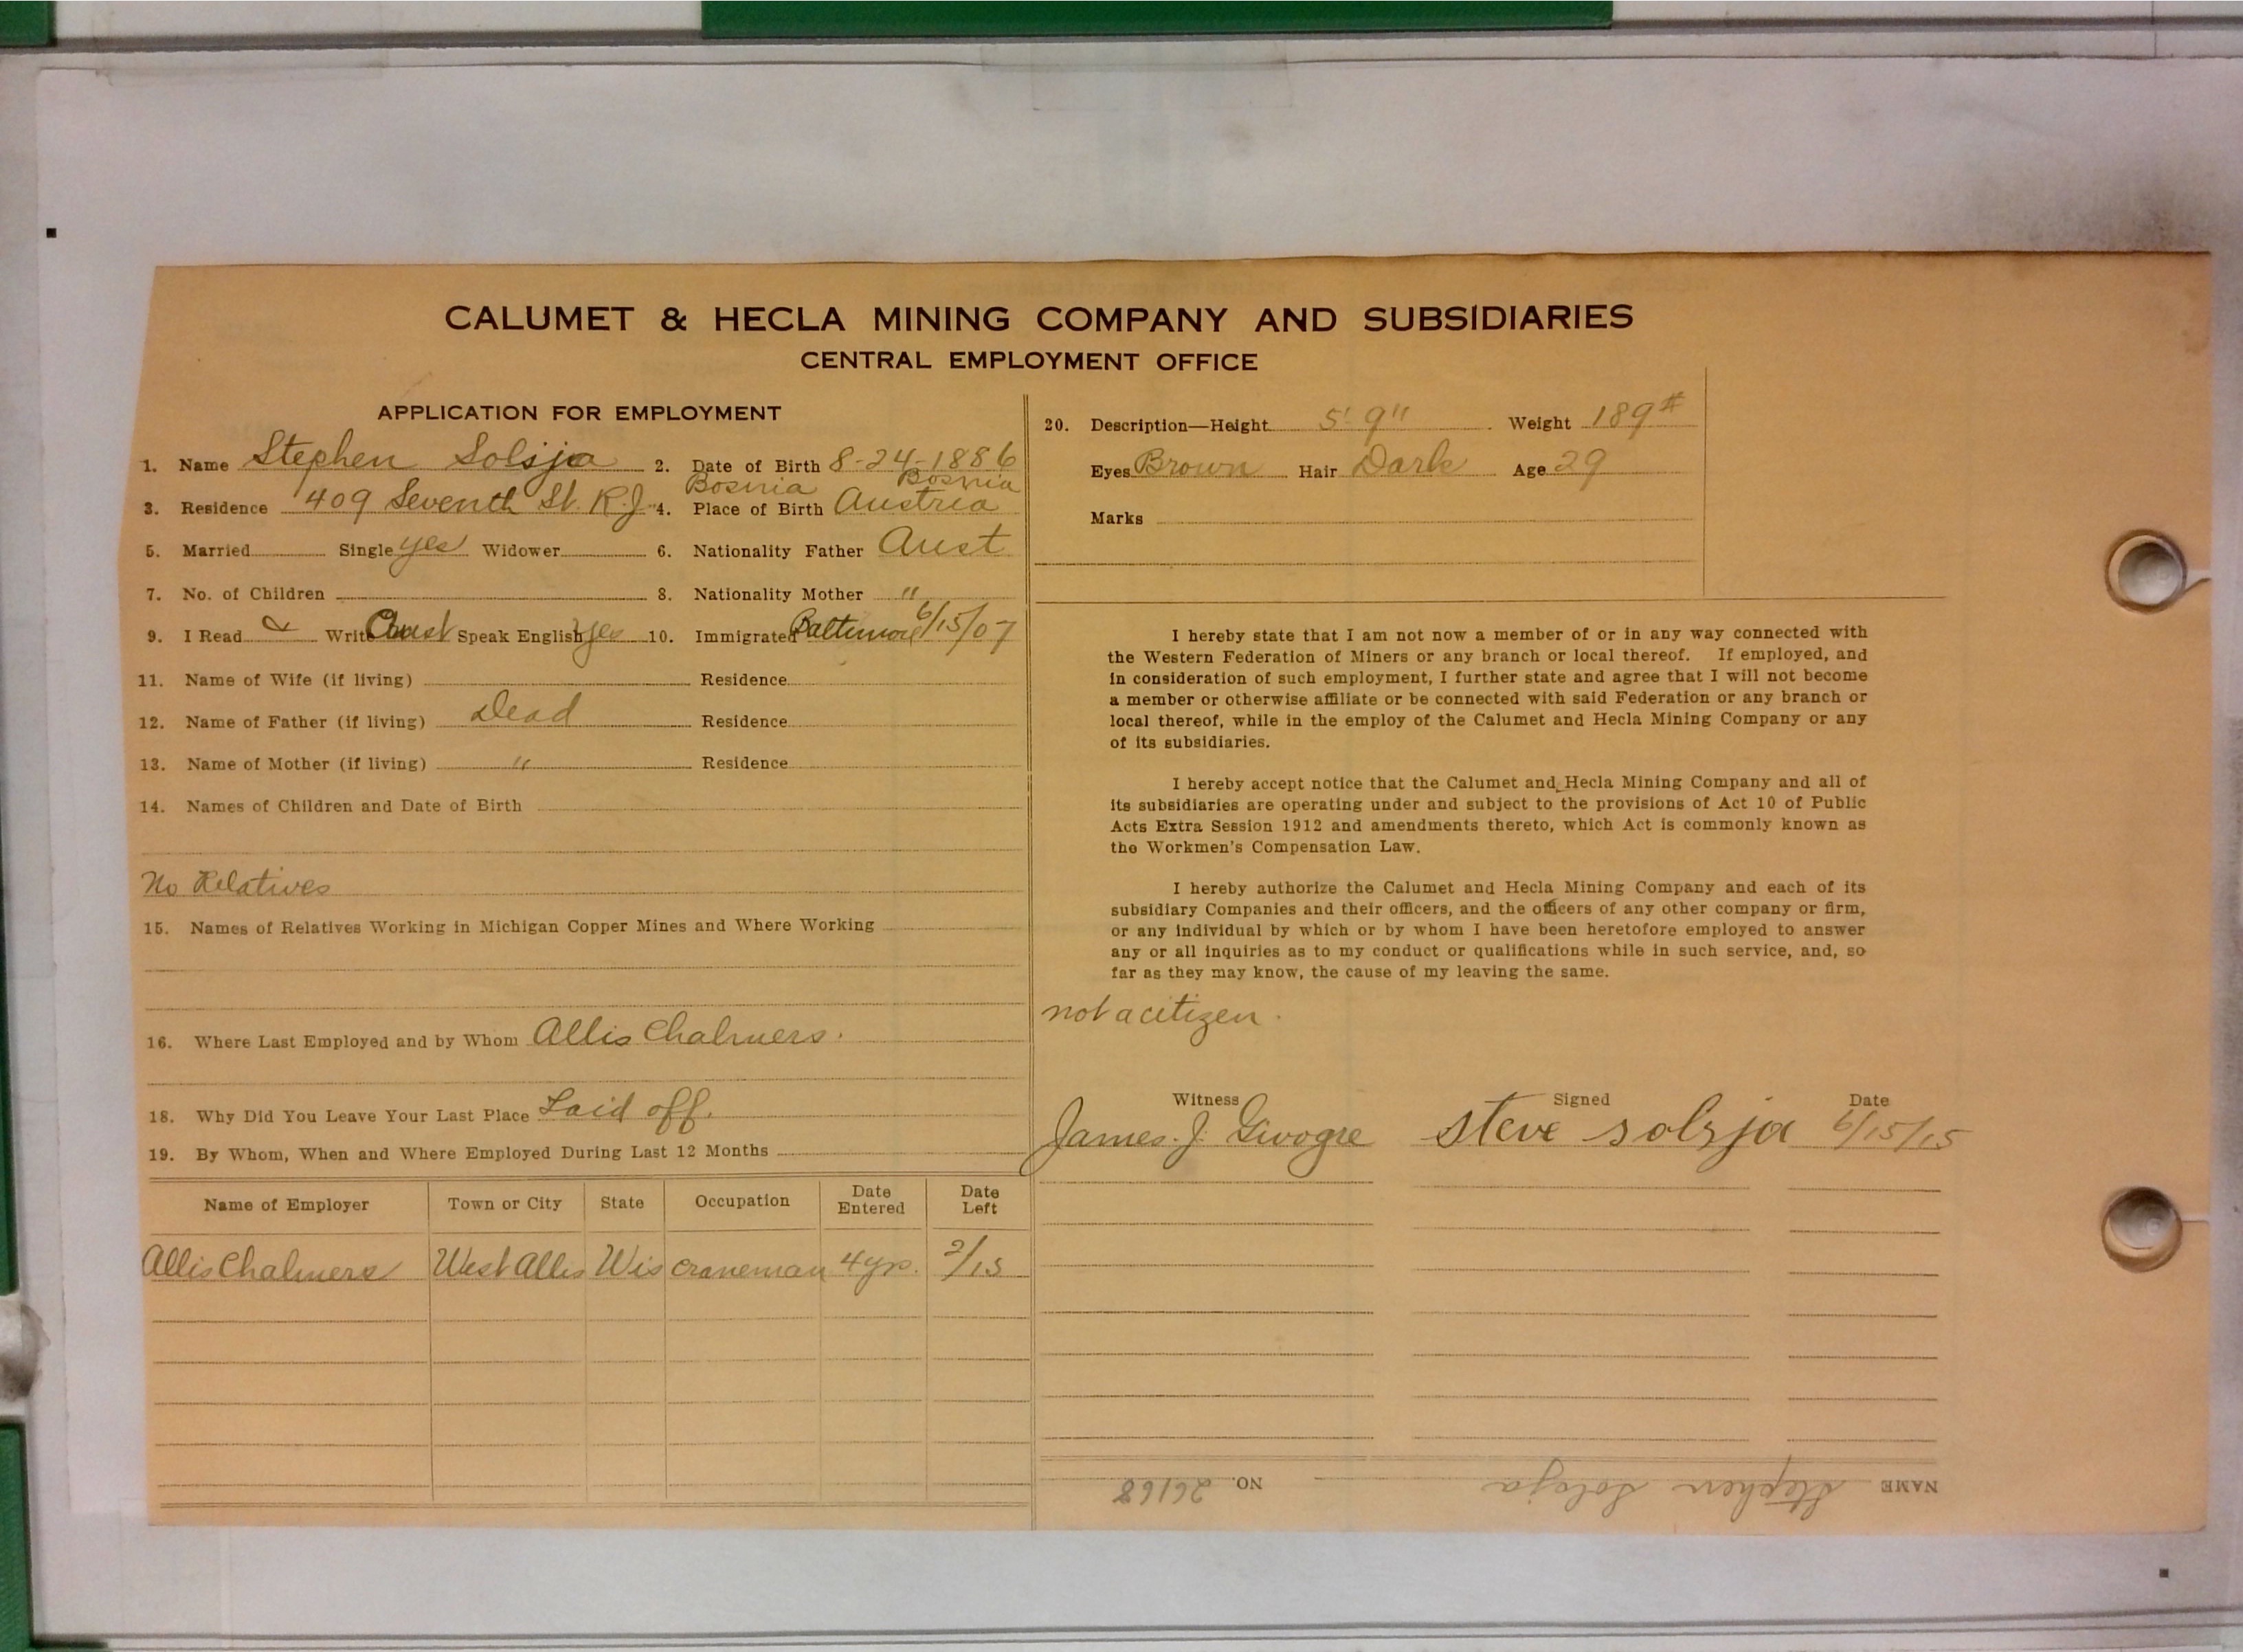 CALUMET & HECLA MINING COMPANY AND SUBSIDIARIES
CENTRAL EMPLOYMENT OFFICE
APPLICATION FOR EMPLOYMENT
1. Name Stephen Solsja 2. Date of Birth 8-24-1886
Bosnia Bosnia
3. Residence 409 Seventh St. R.J. 4. Place of Birth Austria
5. Married Single yes Widower 6. Nationality Father Aust
7. No. of Children 8. Nationality Mother "
9. I Read & Write Aust Speak English yes 10. Immigrated Baltimore 6/15/07
11. Name of Wife (if living) Residence
12. Name of Father (if living) Dead Residence
13. Name of Mother (if living) " Residence
14. Names of Children and Date of Birth
No Relatives
15. Names of Relatives Working in Michigan Copper Mines and Where Working
16. Where Last Employed and by Whom Allis Chalmers.
18. Why Did You Leave Your Last Place Laid off.
19. By Whom, When and Where Employed During Last 12 Months
Name of Employer Town or City State Occupation Date Entered Date Left
Allis Chalmers West Allis Wis craneman 4 yrs. 2/15
20. Description—Height 5' 9" Weight 189#
Eyes Brown Hair Dark Age 29
Marks
I hereby state that I am not now a member of or in any way connected with
the Western Federation of Miners or any branch or local thereof. If employed, and
in consideration of such employment, I further state and agree that I will not become
a member or otherwise affiliate or be connected with said Federation or any branch or
local thereof, while in the employ of the Calumet and Hecla Mining Company or any
of its subsidiaries.
I hereby accept notice that the Calumet and Hecla Mining Company and all of
its subsidiaries are operating under and subject to the provisions of Act 10 of Public
Acts Extra Session 1912 and amendments thereto, which Act is commonly known as
the Workmen's Compensation Law.
I hereby authorize the Calumet and Hecla Mining Company and each of its
subsidiary Companies and their officers, and the officers of any other company or firm,
or any individual by which or by whom I have been heretofore employed to answer
any or all inquiries as to my conduct or qualifications while in such service, and, so
far as they may know, the cause of my leaving the same.
not a citizen.
Witness Signed Date
James. J. steve solsja 6/15/15
NAME Stephen Solsja NO. 26168